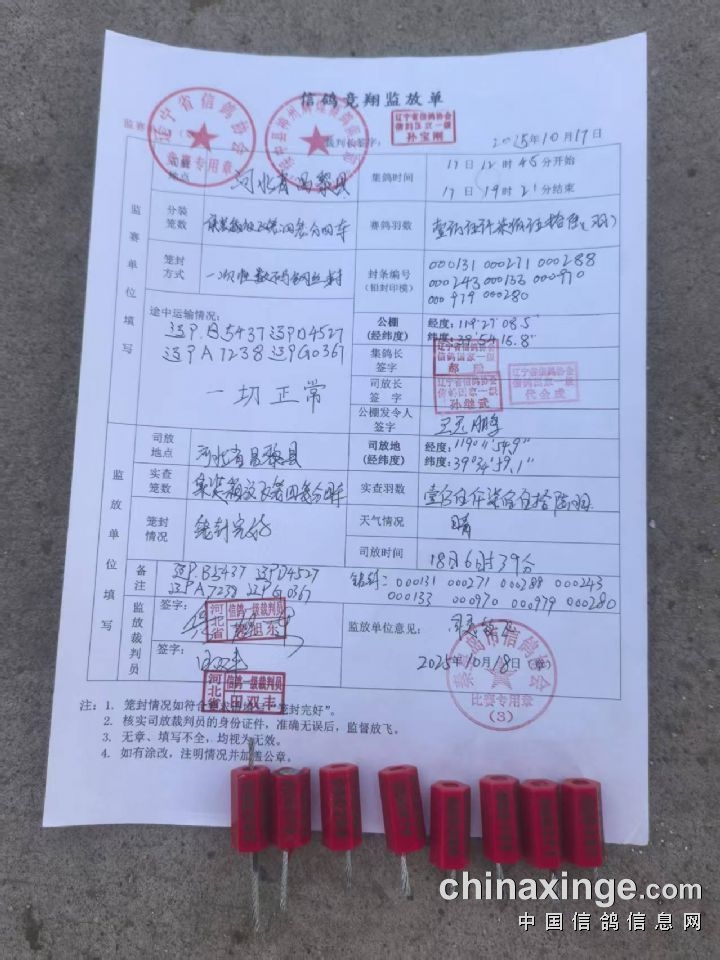 信鸽竞翔监放单
辽宁省信鸽协会
竞赛专用章
辽宁省信鸽协会
信鸽国家一级
孙宝刚
监赛
裁判长签字:
2025年10月17日
地点
河北省昌黎县
集鸽时间
17日12时45分开始
17日19时21分结束
监赛单位填写
分装笼数
赛鸽羽数
笼封方式
一次性数码钢丝封
封条编号
(铅封印模)
000131 000271 000288
000243 000133 000970
000979 000280
途中运输情况:
辽P.B5437 辽PD4527
辽PA7238 辽PG0367
一切正常
公棚
(经纬度)
经度:119°27'08.5"
纬度:39°54'15.8"
集鸽长签字
辽宁省信鸽协会
信鸽国家一级
司放长签字
辽宁省信鸽协会
信鸽国家一级
孙继武
辽宁省信鸽协会
信鸽国家一级
代会成
公棚发令人签字
监放单位填写
司放地点
河北省昌黎县
司放地
(经纬度)
经度:119°11'54.9"
纬度:39°34'59.1"
实查笼数
实查羽数
笼封情况
铅封完好
天气情况
晴
司放时间
18日6时39分
备注
辽P.B5437 辽PD4527
辽PA7238 辽PG0367
铅封:000131 000271 000288 000243
000133 000970 000979 000280
监放裁判员
签字:
河北省
信鸽一级裁判员
签字:
田双丰
河北省
信鸽一级裁判员
田双丰
监放单位意见:
2025年10月18日(章)
秦皇岛市信鸽协会
比赛专用章
(3)
注:1. 笼封情况如符合
“笼封完好”。
2. 核实司放裁判员的身份证件,准确无误后,监督放飞。
3. 无章、填写不全,均视为无效。
4. 如有涂改,注明情况并加盖公章。
chinaxinge.com
中国信鸽信息网